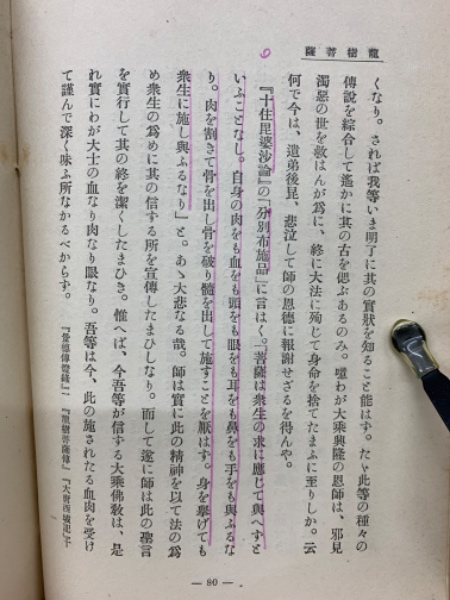 龍樹菩薩
くなり。されば我等いま明了に其の實狀を知ること能はず。たゞ此等の種々の
傳說を綜合して遙かに其の古を偲ぶあるのみ。噫わが大乘興隆の恩師は、邪見
濁惡の世を救はんが爲に、終に大法に殉じて身命を捨てたまふに至りしか。云
何で今は、遺弟後昆、悲泣して師の恩德に報謝せざるを得んや。
『十住毘婆沙論』の「分別布施品」に言はく。「菩薩は衆生の求に應じて與へずと
いふことなし。自身の肉をも血をも頭をも眼をも耳をも鼻をも手をも與ふるな
り。肉を割きて骨を出し骨を破り髓を出して施すことを厭はず。身を擧げても
衆生に施し與ふるなり」と。あゝ大悲なる哉。師は實に此の精神を以て法の爲
め衆生の爲めに其の信する所を宣傳したまひしなり。而して遂に師は此の聖言
を實行して其の終を潔くしたまひき。惟へば、今吾等が信する大乘佛敎は、是
れ實にわが大士の血なり肉なり眼なり。吾等は今、此の施されたる血肉を受け
て謹んで深く味ふ所なかるべからず。
『龍樹菩薩傳』『大唐西域記』
— 80 —